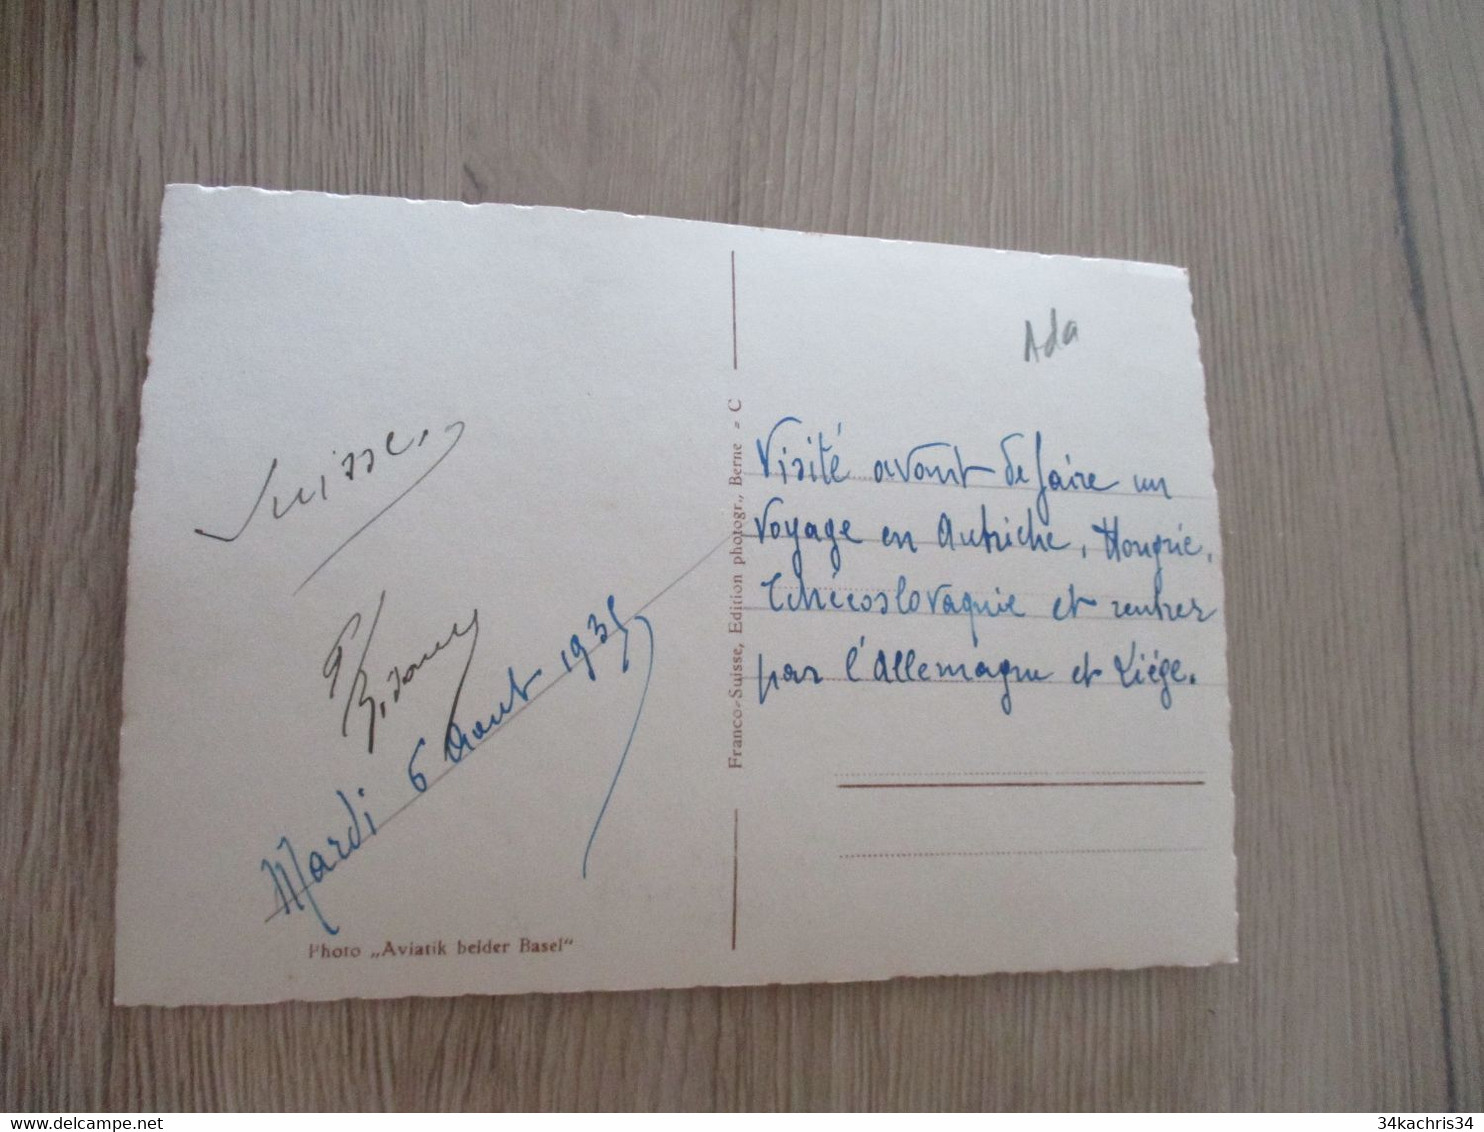 Ada
Suisse
Visité avant de faire un
voyage en Autriche, Hongrie,
Tchécoslovaquie et rentrer
par l'Allemagne et Liége.
Mardi 6 Aout 1935
Franco-Suisse, Edition photogr., Berne - C
Photo „Aviatik beider Basel“
34kachris34